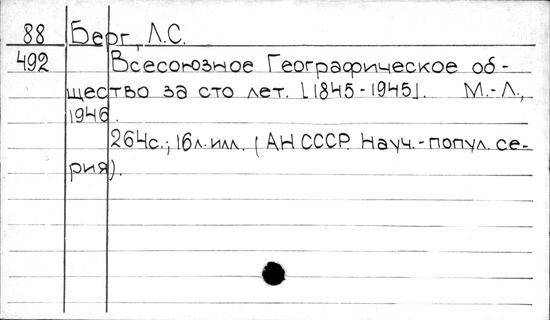 88 Берг, Л.С.
492 Всесоюзное Географическое об-
щество за сто лет. [1845-1945]. М.-Л.,
1946.
264с.; 16л. илл. (АН СССР. Науч.-попул. се-
рия).